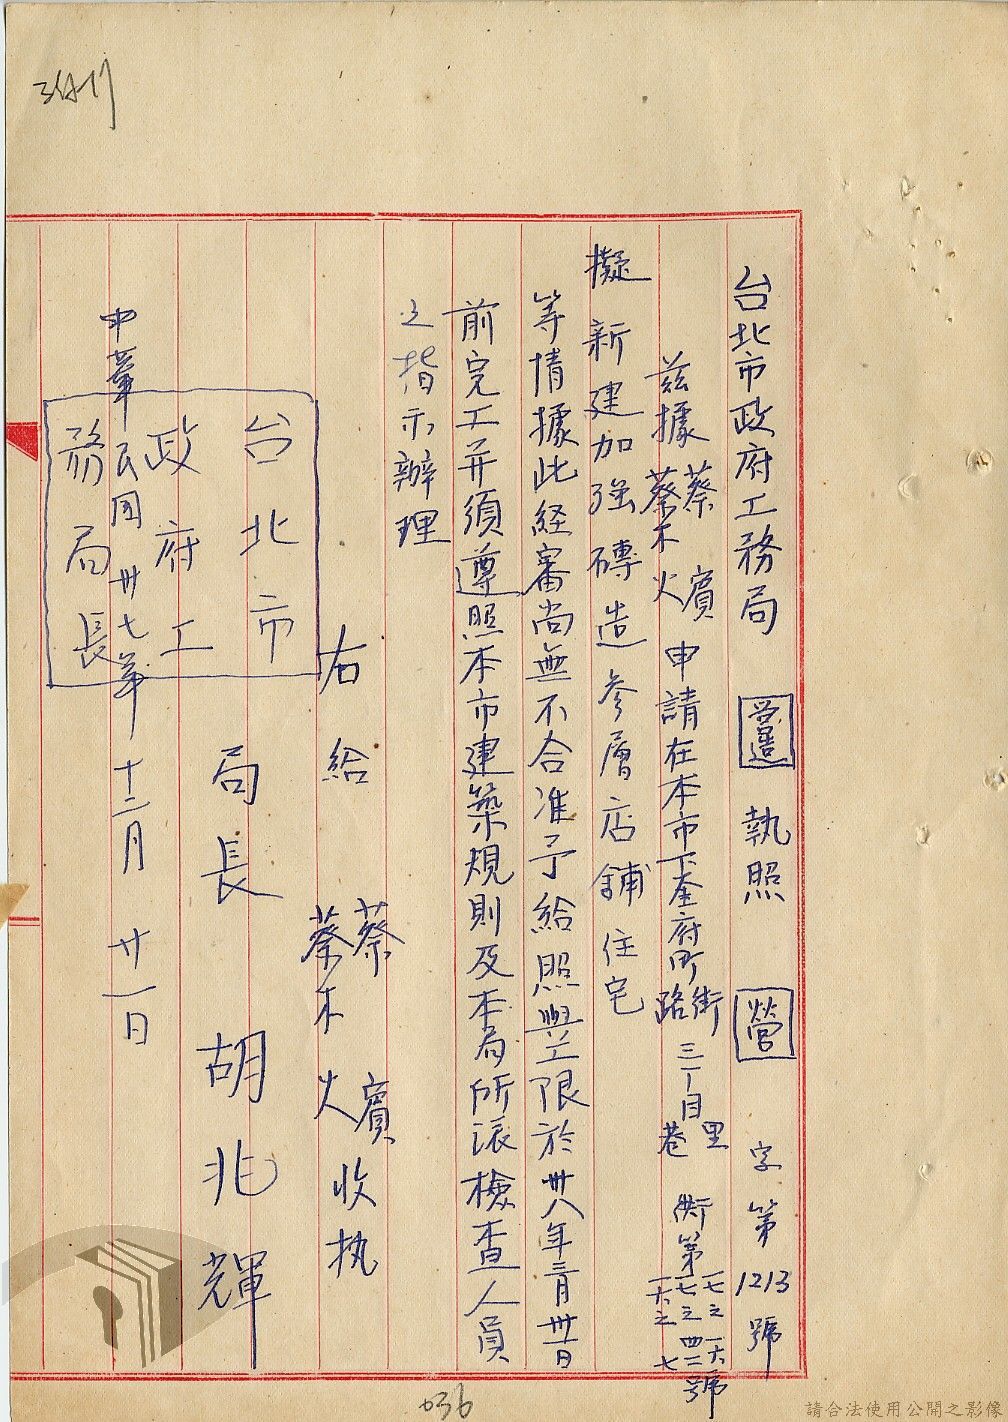 台北市政府工務局 營造 執照 營 字第1213號
茲據 蔡木火 蔡濱 申請在本市下奎府町 街路 三丁目 里巷 街第 一七之一六 一七之四二 一六之七 號
擬新建加強磚造参層店舖住宅
等情據此経審尚無不合准予給照興工限於卅八年三月卅一日
前完工并須遵照本市建築規則及本局所派檢查人員
之指示辦理
右給 蔡濱 蔡木火 收执
局長 胡兆輝
台北市
政府工
務局長
中華民国卅七年十二月廿一日
036
請合法使用公開之影像